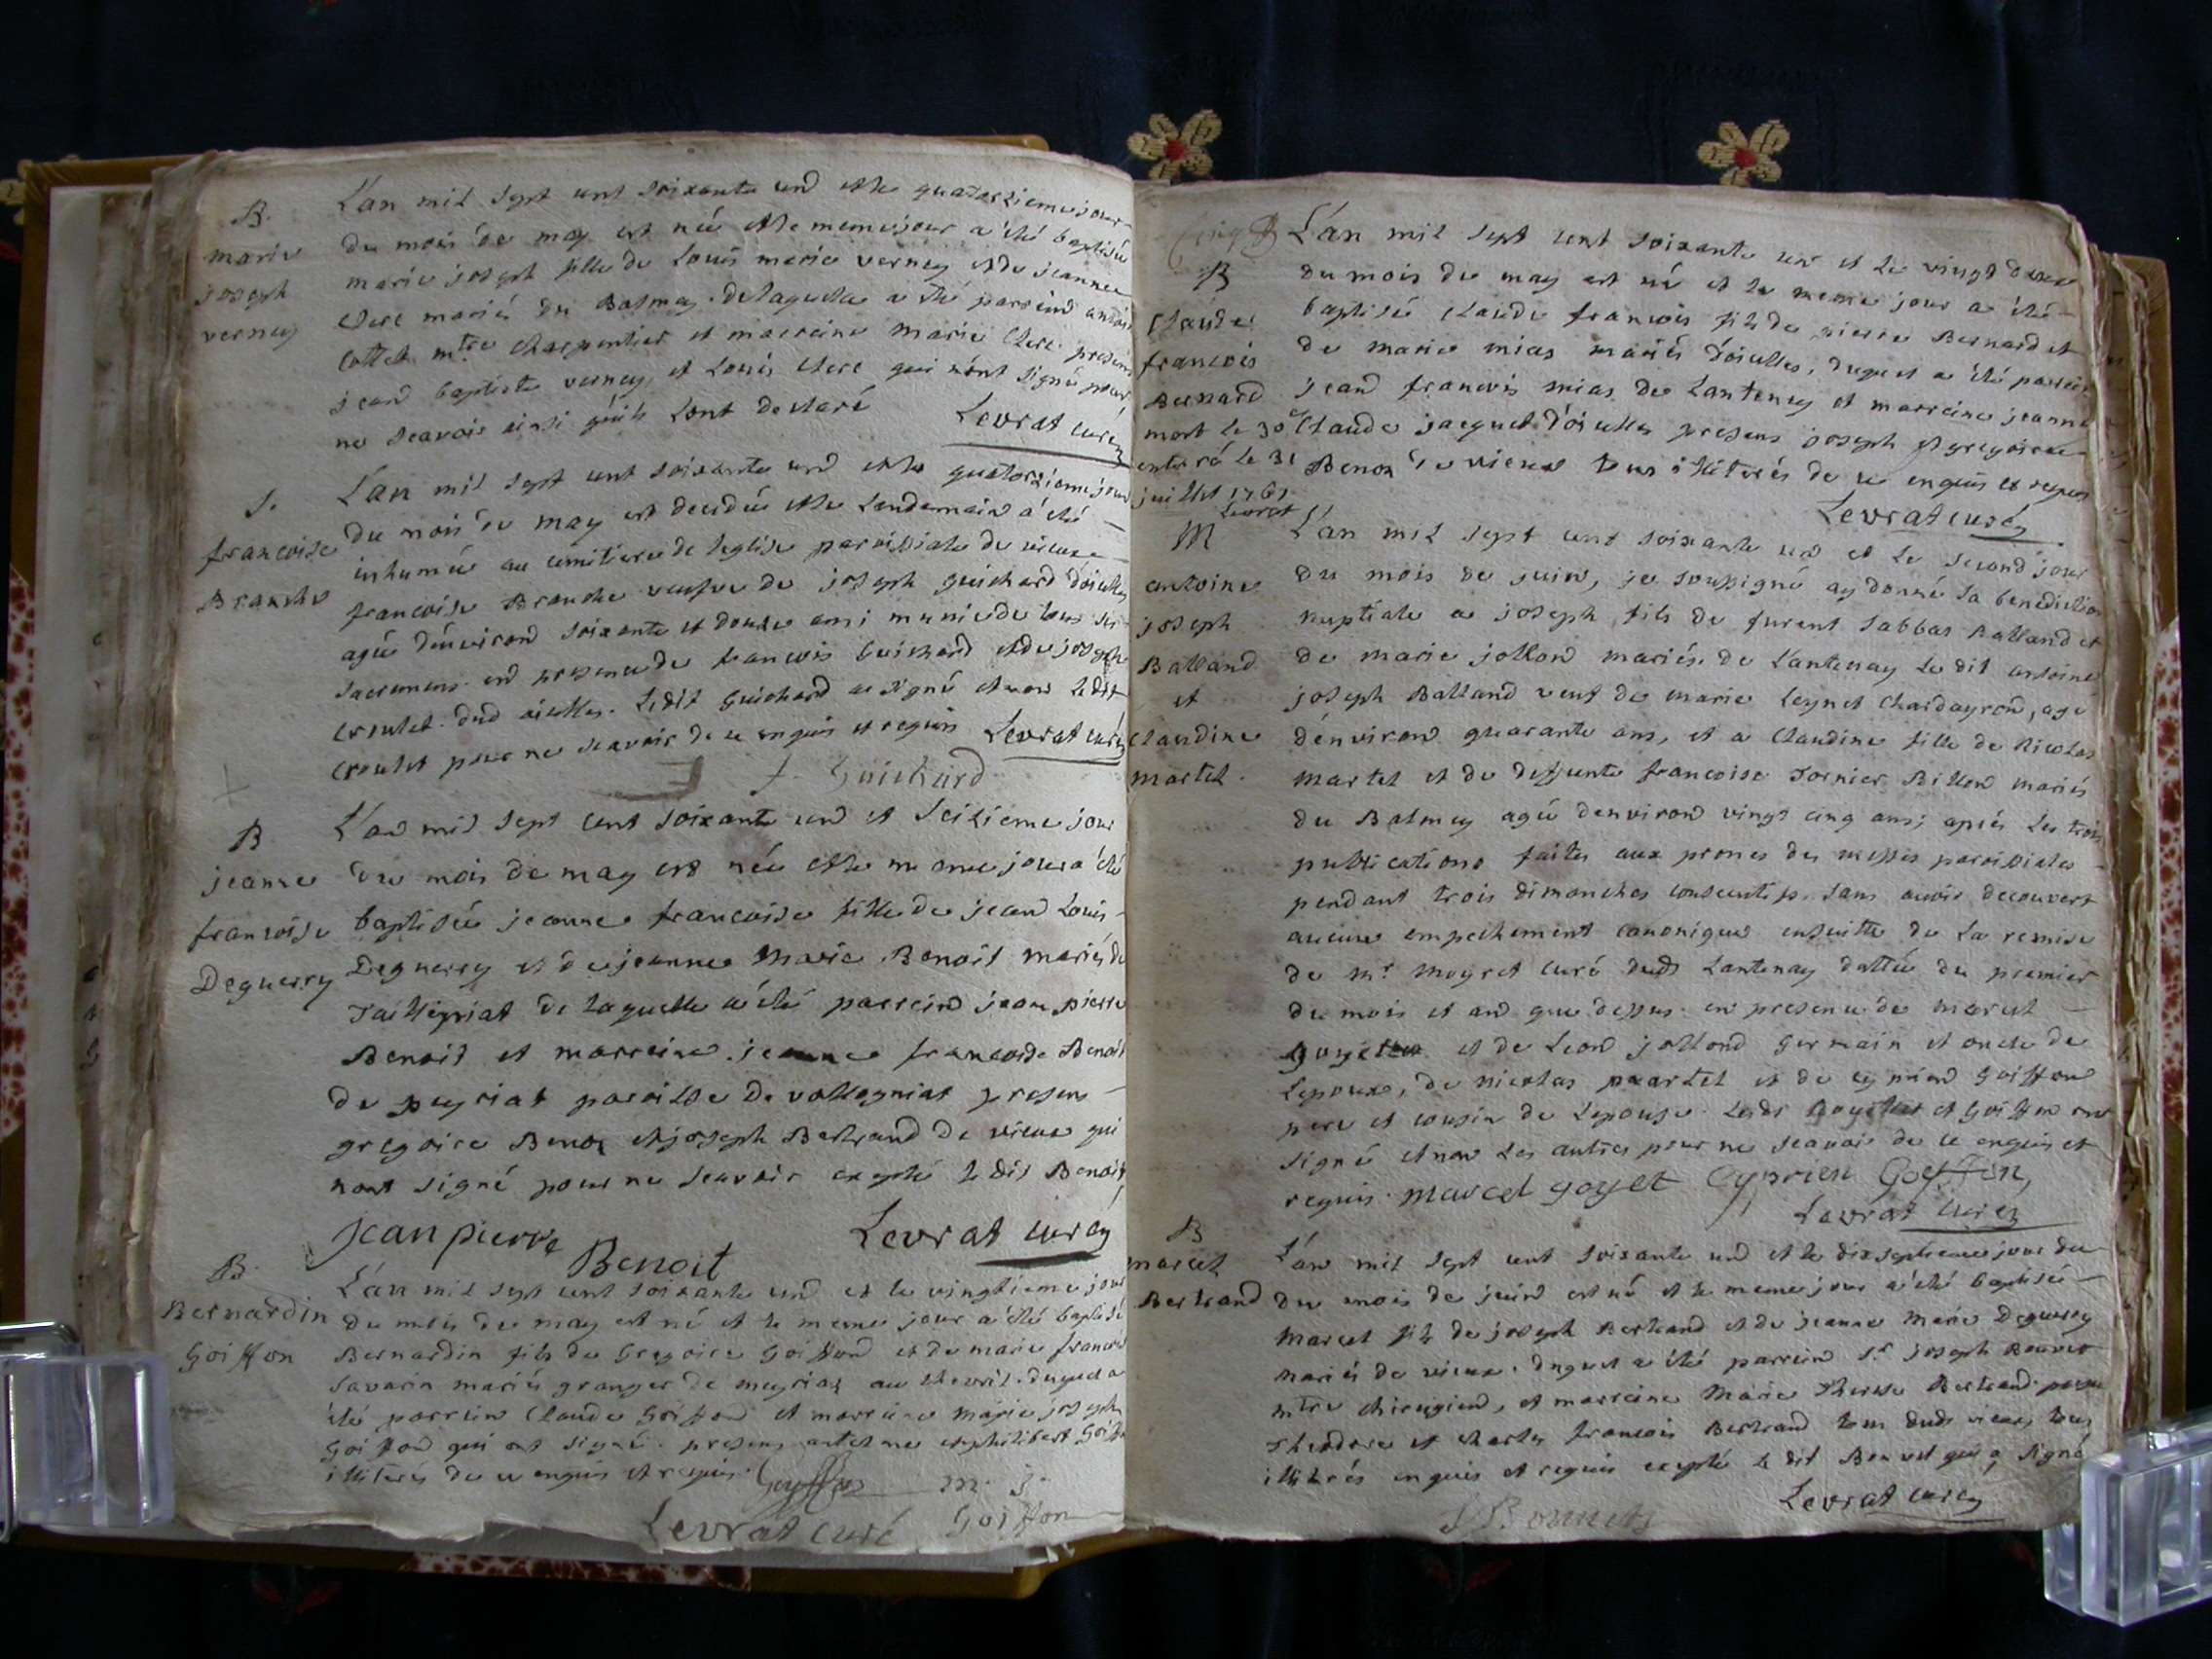 B.
marie
joseph
verney
L'an mil sept cent soixante und et le quatorzieme jour
du mois de may est née et le meme jour a été baptisée
marie joseph fille de Louis marie verney et de jeanne
clerc mariés du Balmay. de laquelle a été parreind antoine
collet mtre charpentier et marreine marie clerc presens
jeand baptiste verney et Louis clerc qui n'ont signé pour
ne scavoir ainsi qu'ils l'ont declaré Levrat curé
S.
francoise
Branche
L'an mil sept cent soixante und et le quatorzieme jour
du mois de may est decedée et le landemaind a été
inhumée au cemitiere de leglise paroissiale de vieux
francoise Branche veufve de joseph guichard d'oisselles
agée d'environd soixante et douze ans; munie de tous ses
sacremens. end presence de francois Guichard et de joseph
croulet dud oiselles. Ledit Guichard a signé et non ledit
croulet pour ne scavoir de ce enquis et requis Levrat curé
f. Guichard
B
jeanne
francoise
Deguerry
L'an mil sept cent soixante und et seizieme jour
du mois de may est née et le meme jour a été
baptisée jeanne francoise fille de jeand Louis
Deguerry et de jeanne Marie Benoit mariés de
Taillepriat de laquelle a été parreind jean pierre
Benoit et marreine jeanne francoise Benoit
de peyriat paroisse de vollogniat presens
gregoire Benoz et joseph Bertrand de vieux qui
n'ont signé pour ne scavoir excepté le dit Benoit
jean pierre Benoit Levrat curé
B.
Bernardin
Goiffon
L'an mil sept cent soixante und et le vingtieme jour
du mois de may est né et le meme jour a été baptisé
Bernardin fils de Gregoire Goiffond et de marie francoise
savarin mariés granger de meyriaz au chevril. duquel a
été parrein Claude Goiffond et marreine marie joseph
Goiffond qui ont signé. presens antelme et philibert Goiffon
illiterés de ce enquis et requis. Goyffon m. j.
Levrat curé Goiffon
B
Claude
francois
Bernard
mort le 30 et
enterré le 31
juillet 1761
Levrat
L'an mil sept cent soixante un et le vingt deux
du mois de may est né et le meme jour a été
baptisé claude francois fils de pierre Bernard et
de marie mias mariés d'oiselles, duquel a été parrein
jeand francois mias de Lantenay et marreine jeanne
Claude jacquet d'oiselles presens joseph et gregoire
Benoz de vieux tous illiterés de ce enquis et requis
Levrat curé
M
antoine
joseph
Balland
et
claudine
martel.
L'an mil sept cent soixante und et le second jour
du mois de juin, je soussigné ay donné la benediction
nuptiale a joseph fils de furent sabbas Balland et
de marie jolland mariés de Lantenay le dit antoine
joseph Balland veuf de marie Leynet Chardayrond, age
d'environd quarante ans, et a claudine fille de Nicolas
martel et de deffunte francoise Tornier Billon mariés
du Balmey agée denvirond vingt cinq ans; apres les trois
publications faites aux prones des messes paroissiales
pendant trois dimanches consecutifs sans avoir decouvert
aucune empechement canonique ensuitte de la remise
de mr moyret curé dudt Lantenay dattée du premier
du mois et and que dessus. en presence de marcel
goyet et de Leond jolland germain et oncle de
L'epoux, de nicolas martel et de cyriend Goiffon
pere et cousin de L'epouse. Lesdt Goyet et Goiffon ont
signé et non les autres pour ne scavoir de ce enquis et
requis. marcel goyet Cyprien Goiffon,
Levrat curé
B
marcel
Bertrand
L'an mil sept cent soixante und et le dixseptieme jour du
du mois de juind est né et le meme jour a été baptisé
marcel fils de joseph Bertrand et de jeanne marie Deguerry
mariés de vieux. duquel a été parrein sr joseph Bonnet
mtre chirugiend, et marreine Marie Therese Bertrand.
Theodore et charles francois Bertrand tous dudt vieux, tous
illiterés enquis et requis excepté le dit Bonnet qui a signé
Levrat curé
J Bonnet